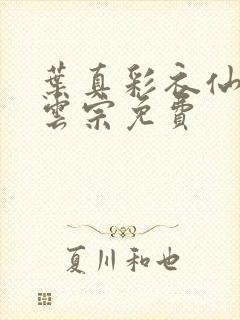 葉真彩衣仙
雲宗免費
夏川和也